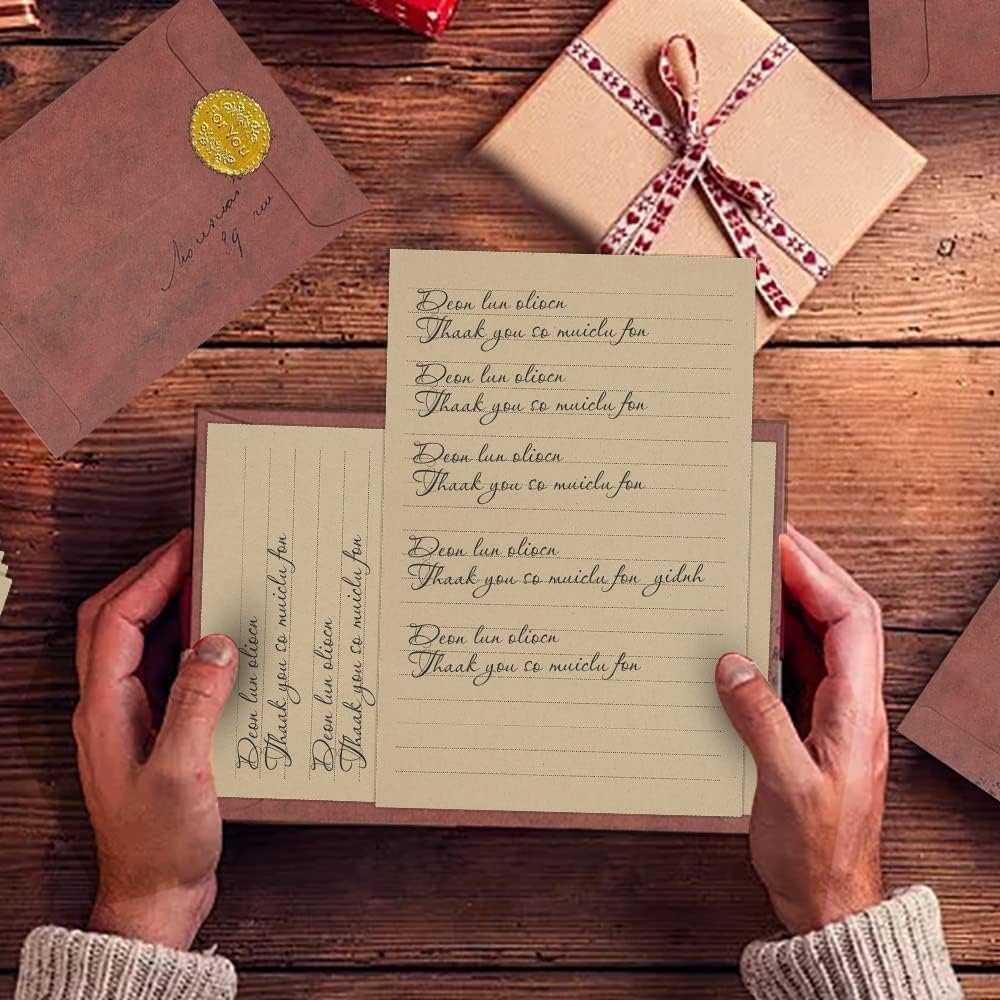 For You
99
Deon lun oliocn
Thaak you so muiclu fon
Deon lun oliocn
Thaak you so muiclu fon
Deon lun oliocn
Thaak you so muiclu fon
Deon lun oliocn
Thaak you so muiclu fon yidnh
Deon lun oliocn
Thaak you so muiclu fon
Deon lun oliocn
Thaak you so muiclu fon
Deon lun oliocn
Thaak you so muiclu fon